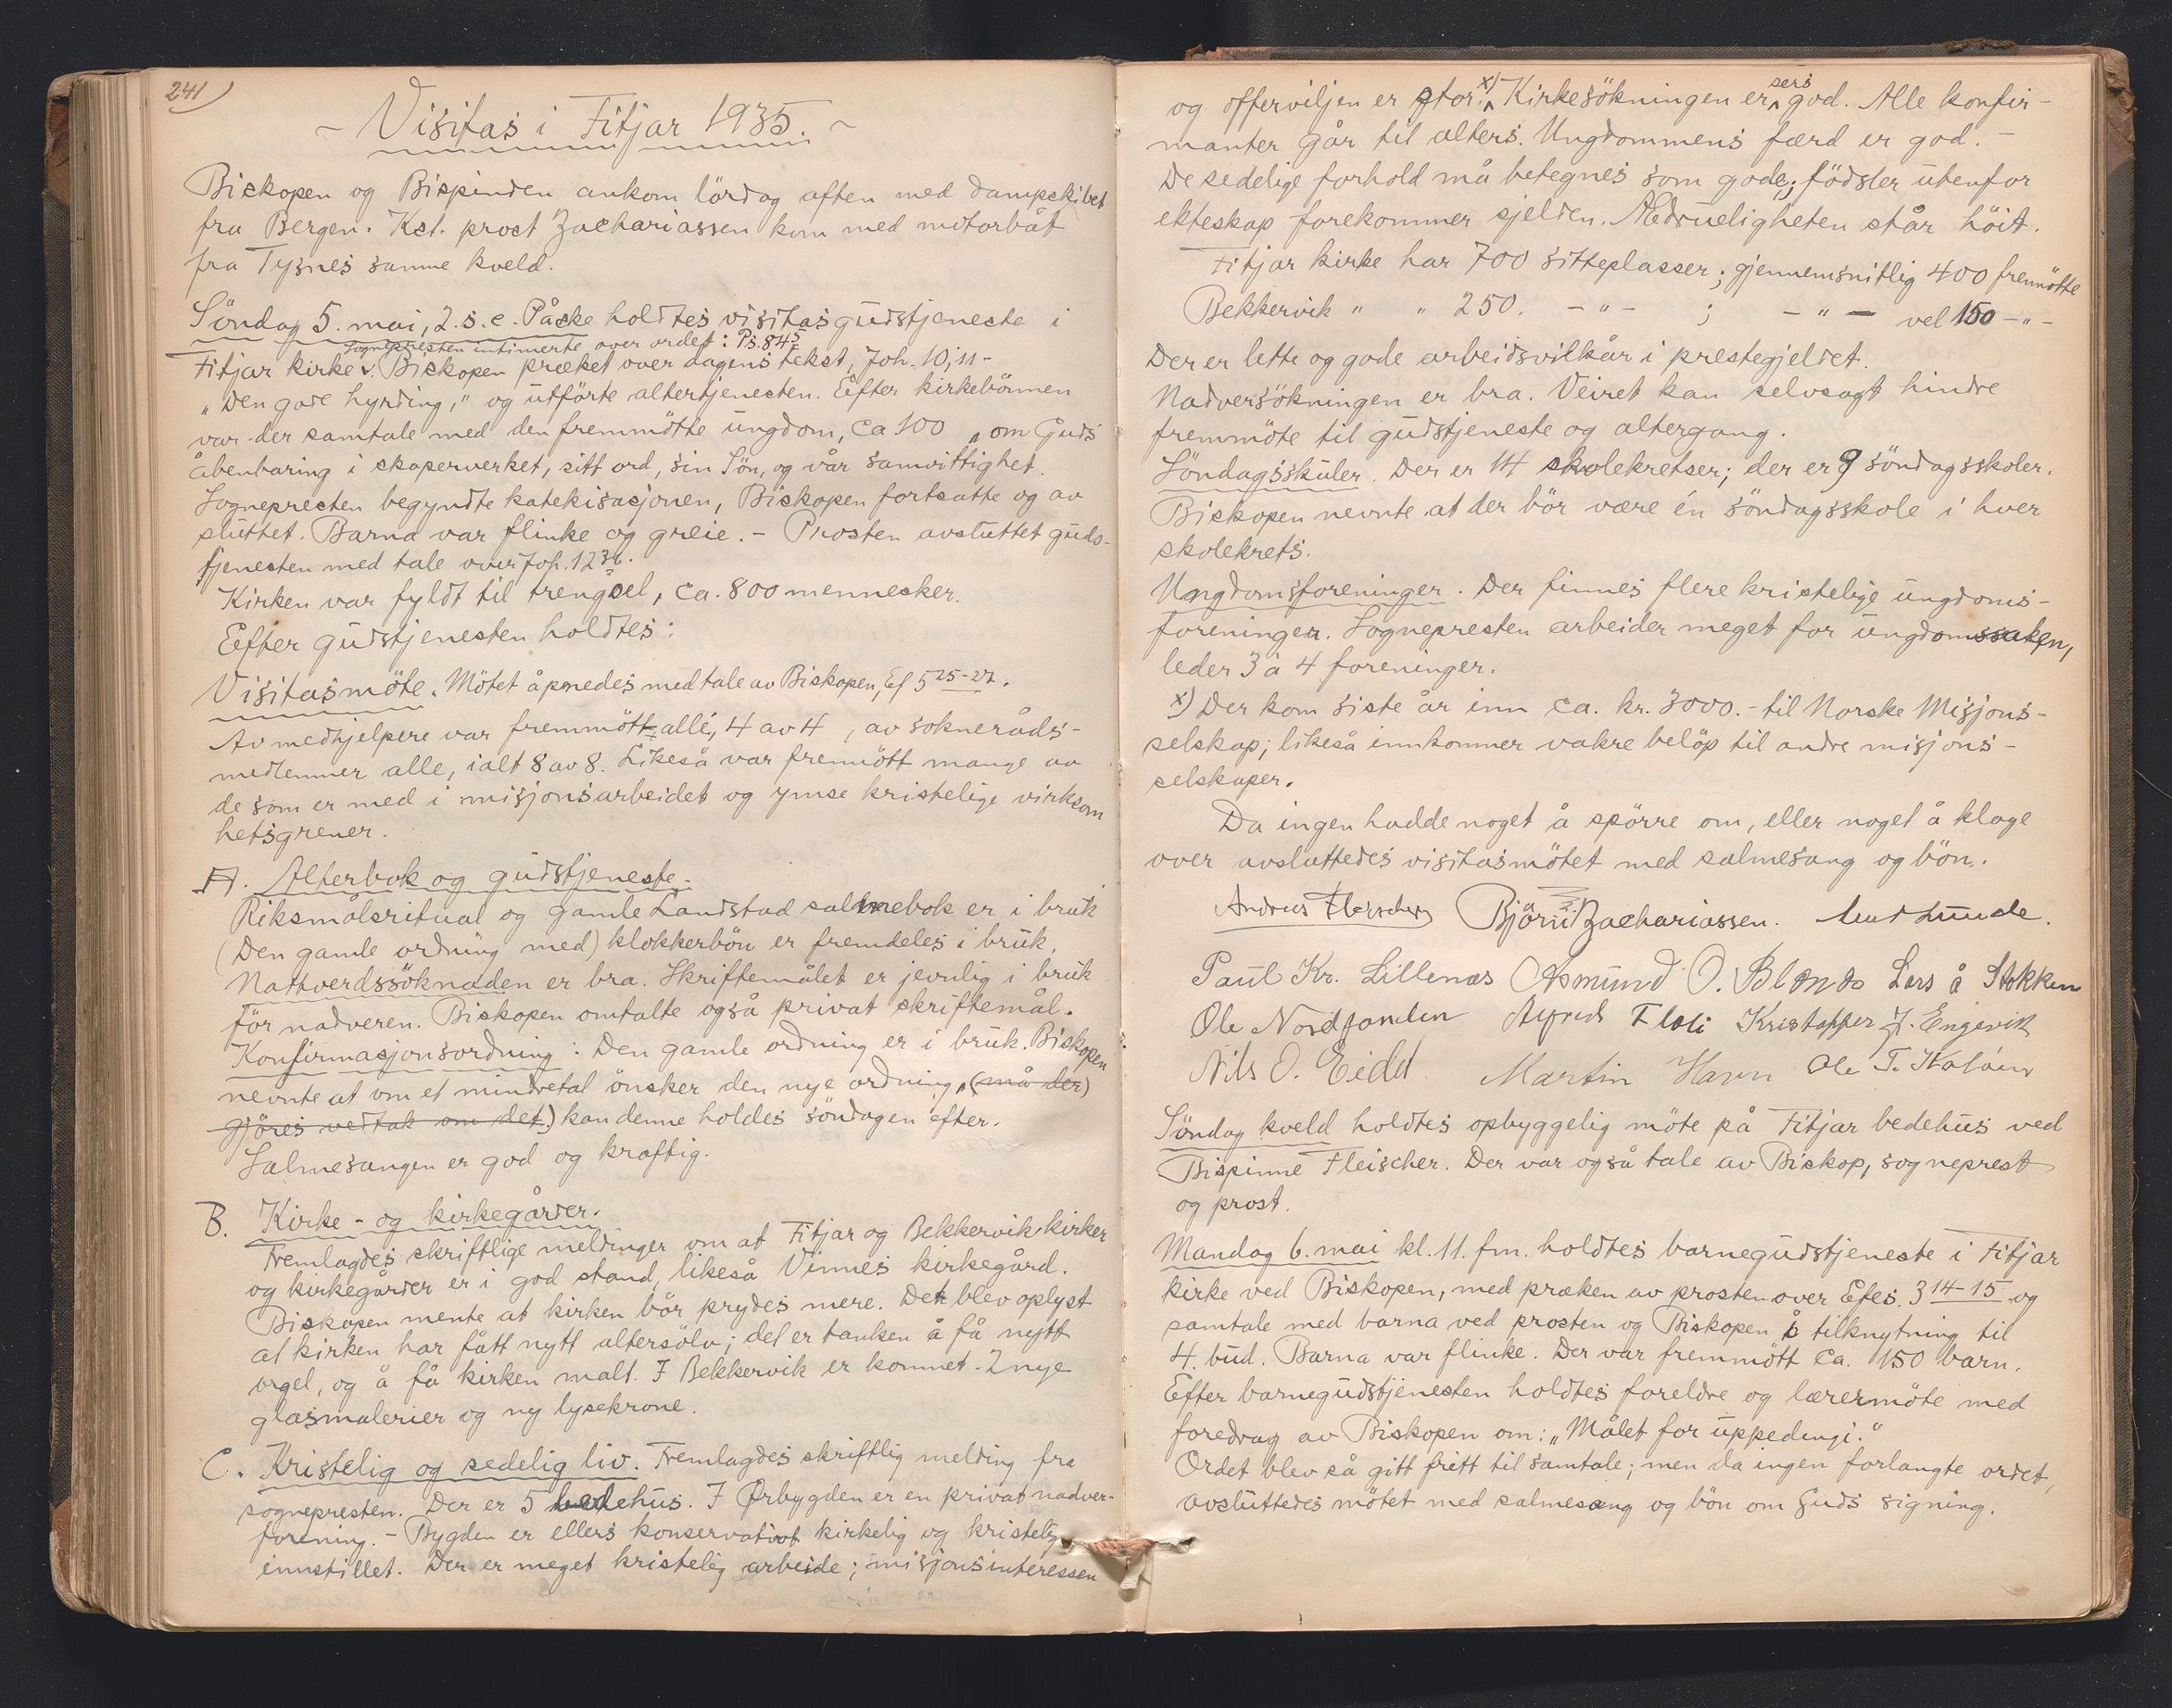 241)
- Visitas i Fitjar 1935. -
Biskopen og Bispinden ankom lördag aften med dampskibet
fra Bergen. Kst. prost Zachariassen kom med motorbåt
fra Tysnes samme kveld.
Söndag 5. mai, 2. s. e. Påske holdtes visitasgudstjeneste i
Sognepresten intimerte over ordet: Ps. 84⁵
Fitjar kirke. Biskopen præket over dagens tekst, Joh. 10, 11-
"Den gode hyrding," og utförte altertjenesten. Efter kirkebönnen
var der samtale med den fremmötte ungdom, ca 100, om Guds
åbenbaring i skaperverket, sitt ord, sin Sön, og vår samvittighet.
Sognepresten begyndte katekisasjonen, Biskopen fortsatte og av
sluttet. Barna var flinke og greie. - Prosten avsluttet guds-
tjenesten med tale over Joh. 12
Kirken var fyldt til trengsel, ca. 800 mennesker.
Eefter gudstjenesten holdtes:
Visitasmöte. Mötet åpnedes med tale av Biskopen, Ef 5²⁵⁻²⁷.
Av medhjelpere var fremmött alle, 4 av 4, av sokneråds-
medlemmer alle, ialt 8 av 8. Likeså var fremmött mange av
de som er med i misjonsarbeidet og ymse kristelige virksom
hetsgrener.
A. Alterbok og gudstjeneste.
Riksmålsritual og gamle Landstad salmebok er i bruk
(Den gamle ordning med) klokkerbön er fremdeles i bruk.
Nattverdssöknaden er bra. Skriftemålet er jevnlig i bruk
för nadveren. Biskopen omtalte også privat skriftemål.
Konfirmasjonsordning: Den gamle ordning er i bruk. Biskopen
nevnte at om et mindretal önsker den nye ordning, (må der)
gjöres vedtak om det) kan denne holdes söndagen efter.
Salmesangen er god og kraftig.
B. Kirke- og kirkegårder.
Fremlagdes skriftlige meldinger om at Fitjar og Bekkervik kirker
og kirkegårder er i god stand, likeså Vinnes kirkegård.
Biskopen mente at kirken bör prydes mere. Det blev oplyst
at kirken har fått nytt altersölv; det er tanken å få nytt
orgel, og å få kirken malt. I Bekkervik er kommet 2 nye
glasmalerier og ny lysekrone.
C. Kristelig og sedelig liv. Fremlagdes skriftlig melding fra
sognepresten. Der er 5 bedehus. I Ørbygden er en privat nadver-
forening. - Bygden er ellers konservativt kirkelig og kristelig
innstillet. Der er meget kristelig arbeide; misjonsinteressen
og offerviljen er stor. x) Kirkesökningen er sers god. Alle konfir-
manter går til alters. Ungdommens færd er god. -
De sedelige forhold må betegnes som gode; födsler utenfor
ekteskap forekommer sjelden. Ædrueligheten står höit.
Fitjar kirke har 700 sitteplasser; gjennemsnitlig 400 fremötte
Bekkervik " " 250. - " - ; - " - vel 150 - " -
Der er lette og gode arbeidsvilkår i prestegjeldet.
Nadversökningen er bra. Veiret kan selvsagt hindre
fremmöte til gudstjeneste og altergang.
Söndagsskuler. Der er 14 skolekretser; der er 9 söndagsskoler.
Biskopen nevnte at der bör være én söndagsskole i hver
skolekrets.
Ungdomsforeninger. Der finnes flere kristelige ungdoms-
foreninger. Sognepresten arbeider meget for ungdomssaken,
leder 3 à 4 foreninger.
x) Der kom siste år inn ca. kr. 3000.- til Norske Misjons-
selskap; likeså innkommer vakre belöp til andre misjons-
selskaper.
Da ingen hadde noget å spörre om, eller noget å klage
over avsluttedes visitasmötet med salmesang og bön.
Andreas Fleischer Bjarne Zachariassen. Lunde.
Paul Kr. Lillenæs Asmund O. Lars å Stokken
Ole Nordfonden Alfred Kristoffer J. Engevik
Nils O. Eidd Martin Havn Ole T.
Söndag kveld holdtes opbyggelig möte på Fitjar bedehus ved
Bispinne Fleischer. Der var også tale av Biskop, sogneprest
og prost.
Mandag 6. mai kl. 11. fm. holdtes barnegudstjeneste i Fitjar
kirke ved Biskopen, med præken av prosten over Efes. 3¹⁴⁻¹⁵ og
samtale med barna ved prosten og Biskopen i tilknytning til
4. bud. Barna var flinke. Der var fremmött ca. 150 barn.
Efter barnegudstjenesten holdtes foreldre og lærermöte med
foredrag av Biskopen om: "Målet for uppedingi."
Ordet blev så gitt fritt til samtale; men da ingen forlangte ordet,
avsluttedes mötet med salmesang og bön om Guds signing.